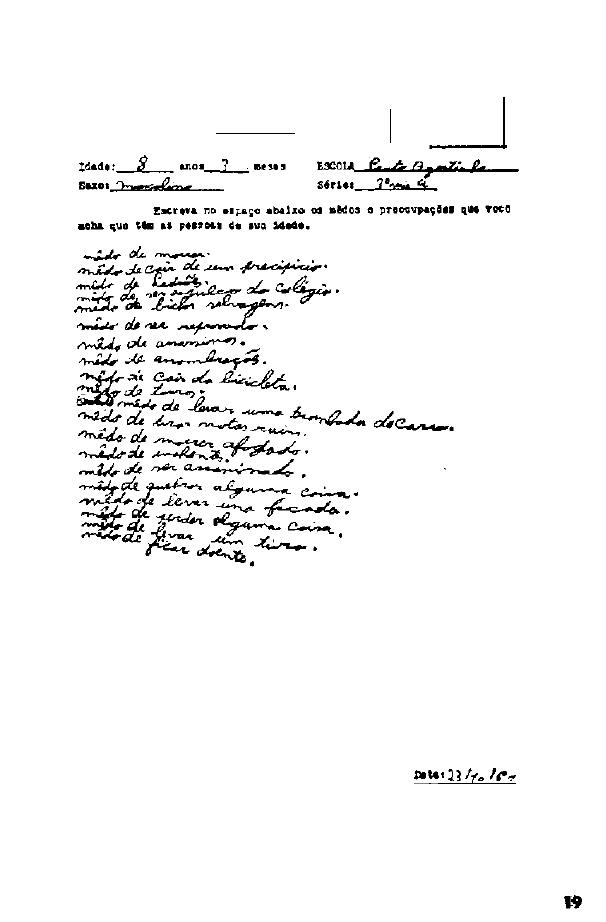 Idade: 8 anos 7 meses ESCOLA Santo Agostinho
Sexo: masculino Série:
Escreva no espaço abaixo os mêdos e preocupações que você
acha que têm as pessoas de sua idade.
mêdo de morrer.
mêdo de cair de um precipício.
mêdo de
mêdo de ser expulso do colégio.
mêdo de bichos selvagens.
mêdo de ser reprovado.
mêdo de assassinos.
mêdo de assombração.
mêdo de cair da bicicleta.
mêdo de touros.
mêdo de levar uma trombada de carro.
mêdo de tirar notas ruins.
mêdo de morrer afogado.
mêdo de enchente.
mêdo de ser assassinado.
mêdo de quebrar alguma coisa.
mêdo de levar una facada.
mêdo de perder alguma coisa.
mêdo de levar um tiro.
ficar doente.
Data: 23/10/67
19